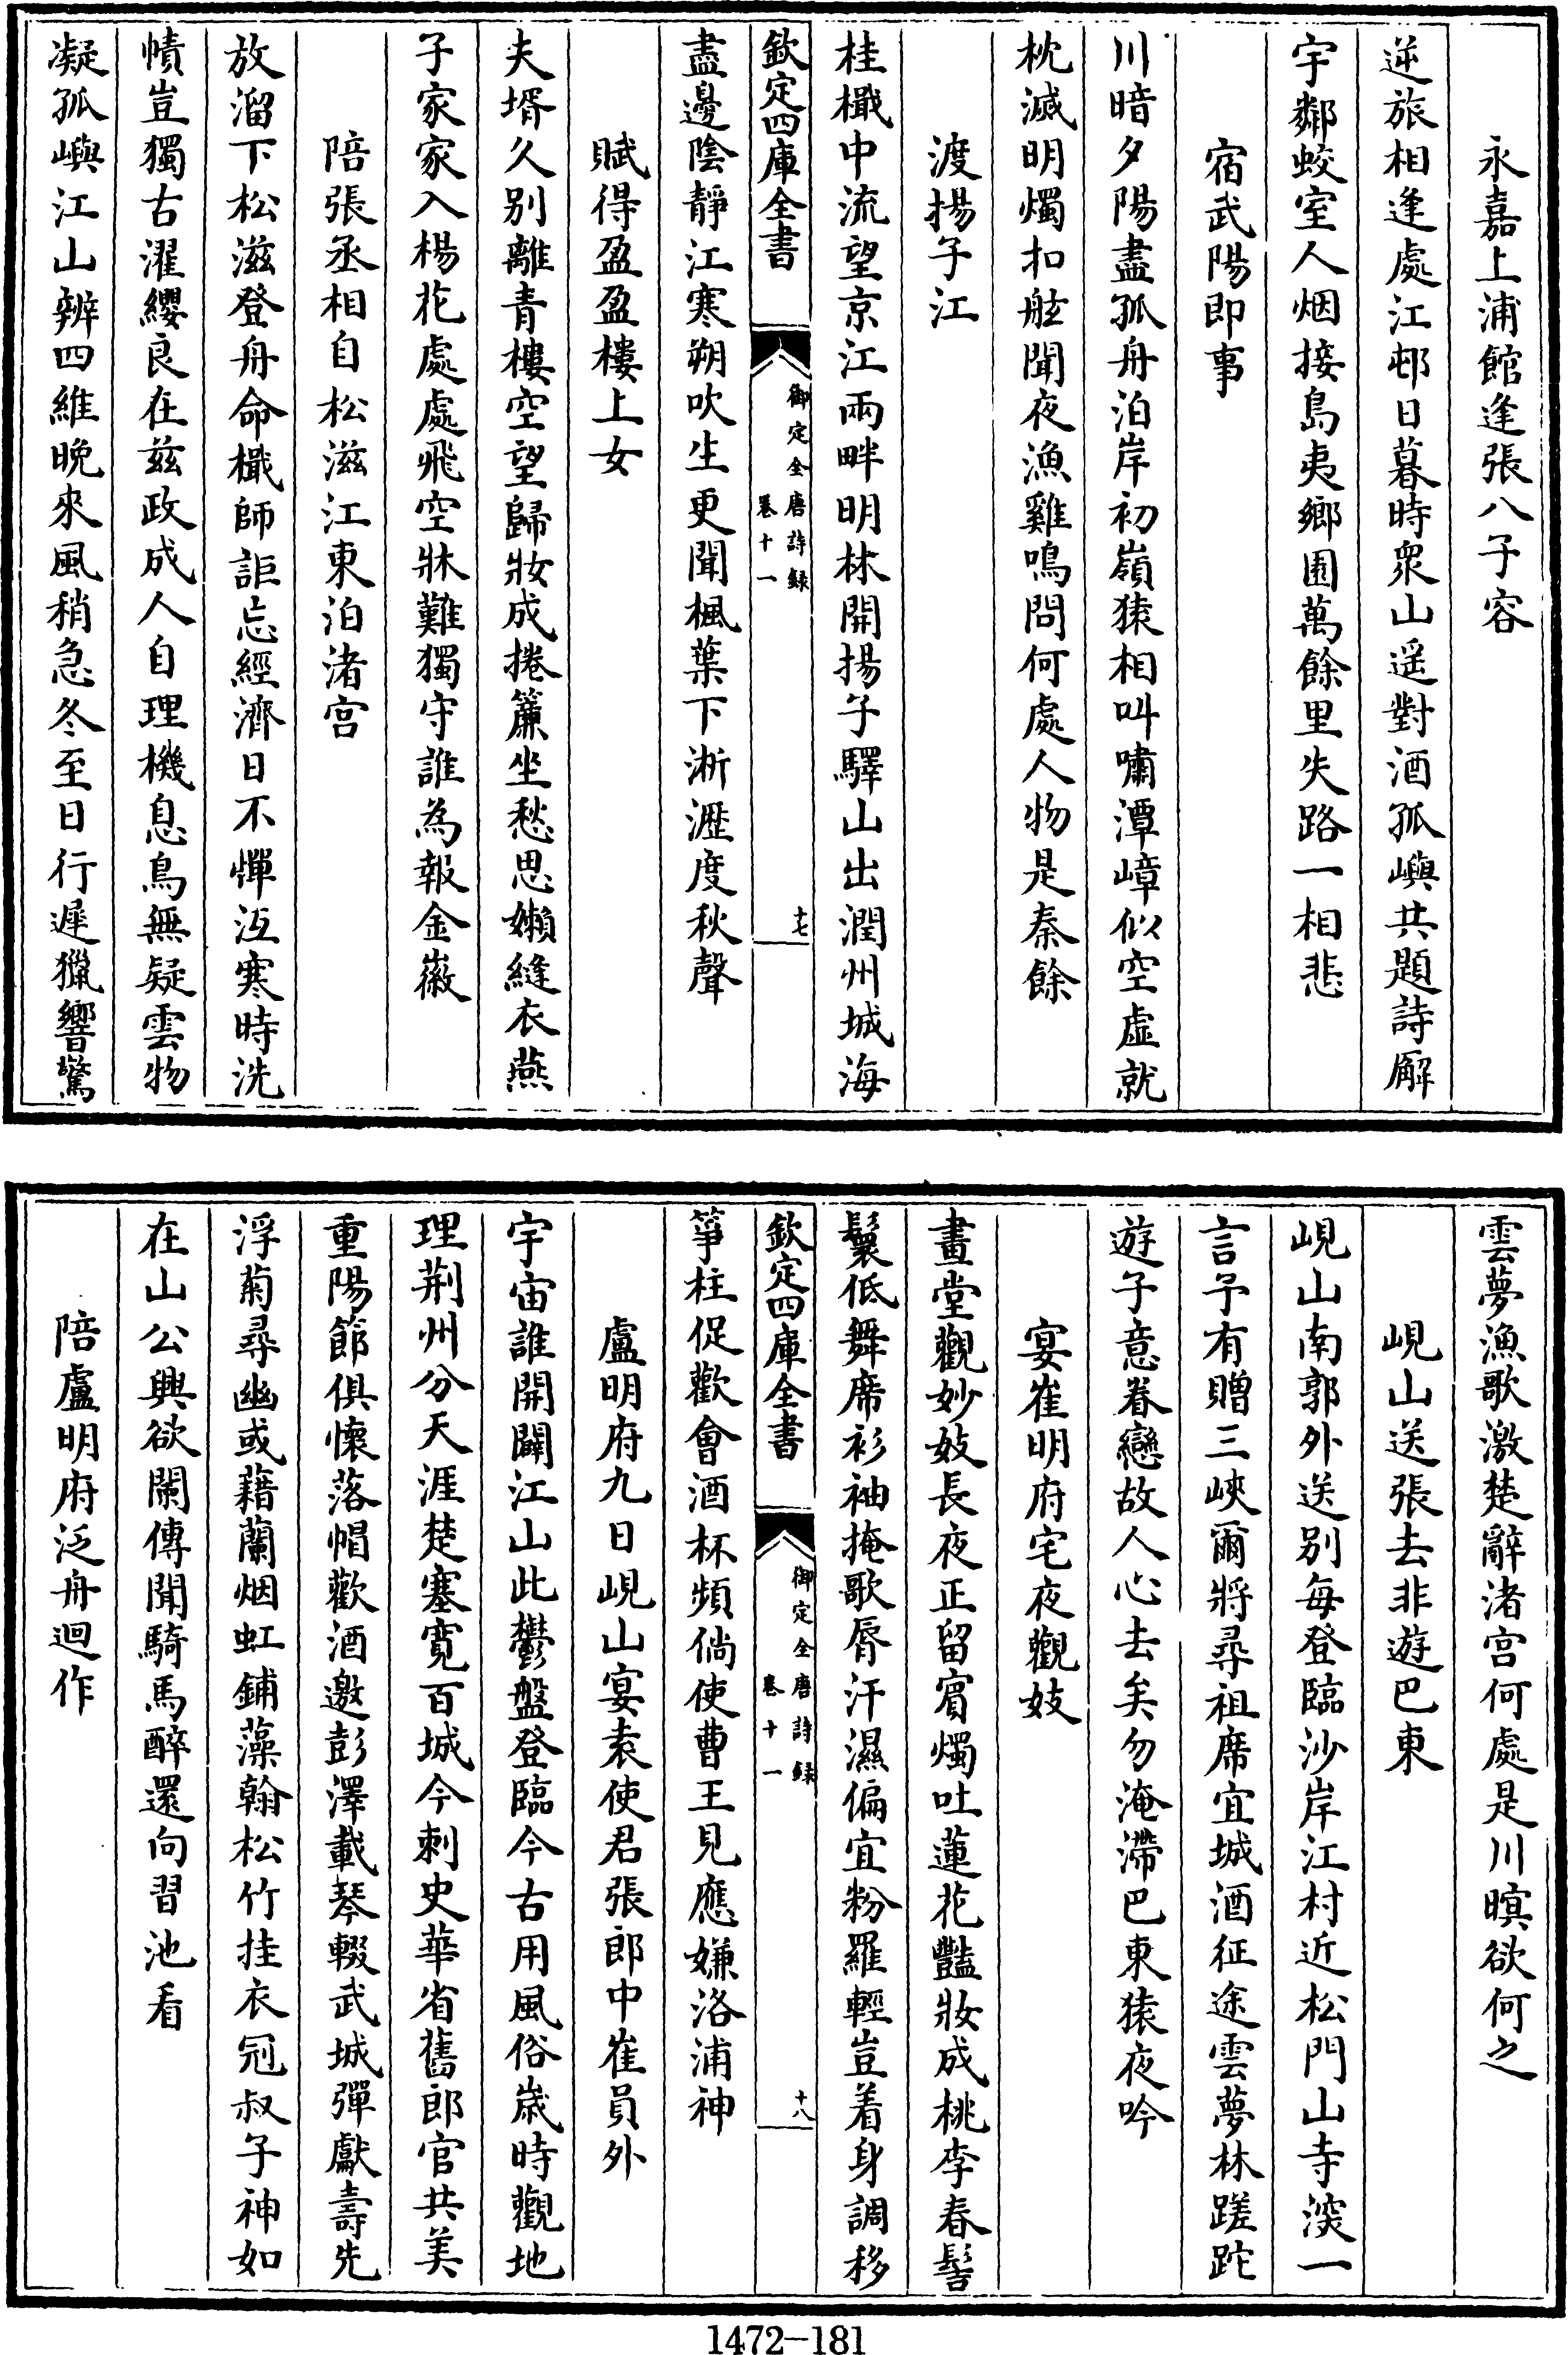 永嘉上浦館逢張八子容
逆旅相逢處江邨日暮時衆山遥對酒孤嶼共題詩廨
宇鄰蛟室人烟接島夷鄉園萬餘里失路一相悲
宿武陽即事
川暗夕陽盡孤舟泊岸初嶺猿相叫嘯潭嶂似空虛就
枕滅明燭扣舷聞夜漁雞鳴問何處人物是秦餘
渡揚子江
桂檝中流望京江兩畔明林開揚子驛山出潤州城海
盡邊陰靜江寒朔吹生更聞楓葉下淅瀝度秋聲
賦得盈盈樓上女
夫壻久別離青樓空望歸妝成捲簾坐愁思嬾縫衣燕
子家家入楊花處處飛空牀難獨守誰為報金徽
陪張丞相自松滋江東泊渚宮
放溜下松滋登舟命檝師詎忘經濟日不憚沍寒時洗
幘豈獨古濯纓良在兹政成人自理機息鳥無疑雲物
凝孤嶼江山辨四維晚來風稍急冬至日行遲獵響驚
欽定四庫全書
御定全唐詩録
卷十一
十七
雲夢漁歌激楚辭渚宮何處是川暝欲何之
峴山送張去非遊巴東
峴山南郭外送別每登臨沙岸江村近松門山寺深一
言予有贈三峽爾將尋祖席宜城酒征途雲夢林蹉跎
遊子意眷戀故人心去矣勿淹滯巴東猿夜吟
宴崔明府宅夜觀妓
畫堂觀妙妓長夜正留賓燭吐蓮花豔妝成桃李春髻
鬟低舞席衫袖掩歌脣汗濕偏宜粉羅輕豈着身調移
箏柱促歡會酒杯頻倘使曹王見應嫌洛浦神
盧明府九日峴山宴袁使君張郎中崔員外
宇宙誰開闢江山此鬱盤登臨今古用風俗歲時觀地
理荆州分天涯楚塞寛百城今刺史華省舊郎官共美
重陽節俱懷落帽歡酒邀彭澤載琴輟武城彈獻壽先
浮菊尋幽或藉蘭烟虹鋪藻翰松竹挂衣冠叔子神如
在山公興欲闌傳聞騎馬醉還向習池看
陪盧明府泛舟迴作
欽定四庫全書
御定全唐詩録
卷十一
十八
1472-181